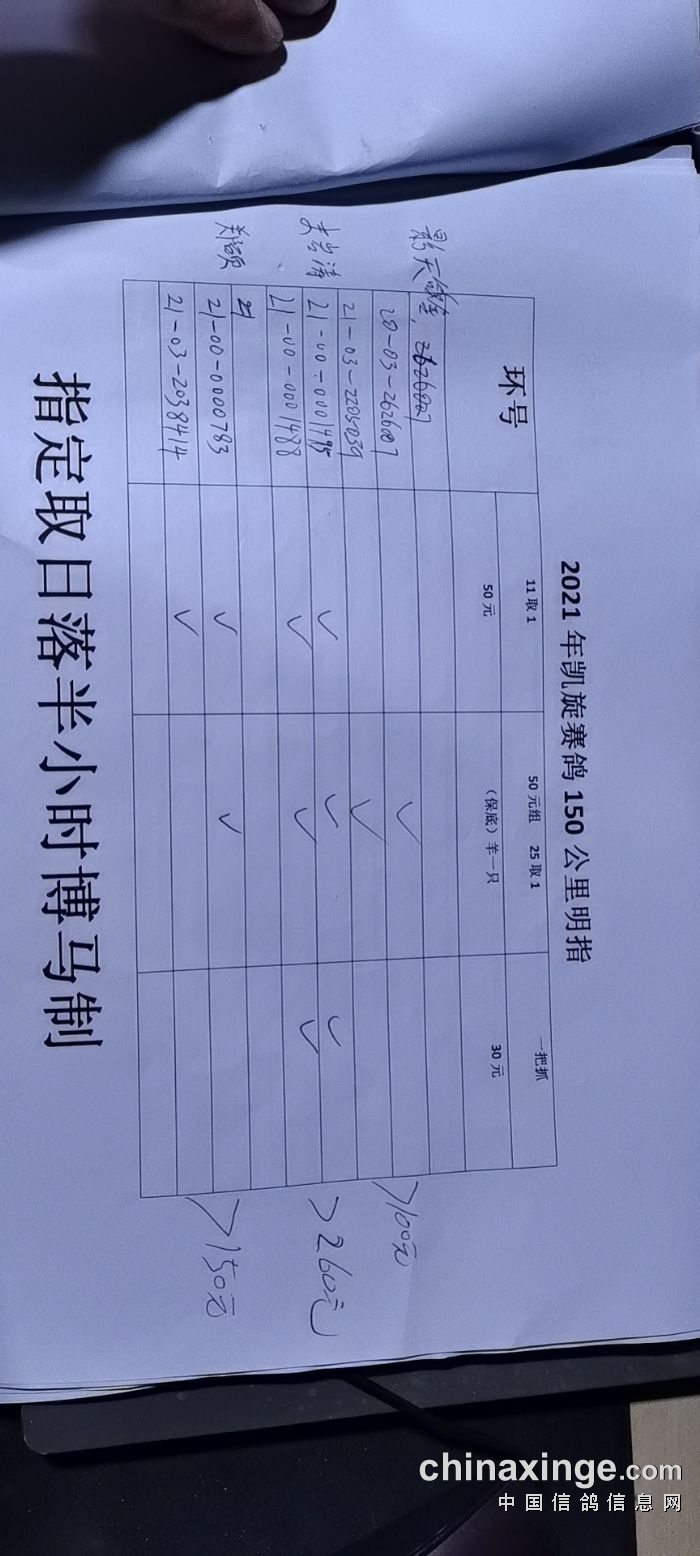 2021 年凯旋赛鸽 150 公里明指
环号 11 取 1 50 元组 25 取 1 一把抓
50 元 (保底) 羊一只 30 元
20-03-2626007 ✓ >100元
21-03-2205039 ✓
21-00-0001495 ✓ ✓ ✓ >260元
21-00-0001488 ✓ ✓ ✓
21-00-0000783 ✓ ✓ >150元
21-03-2038414 ✓
指定取日落半小时博马制
chinaxinge.com
中国信鸽信息网